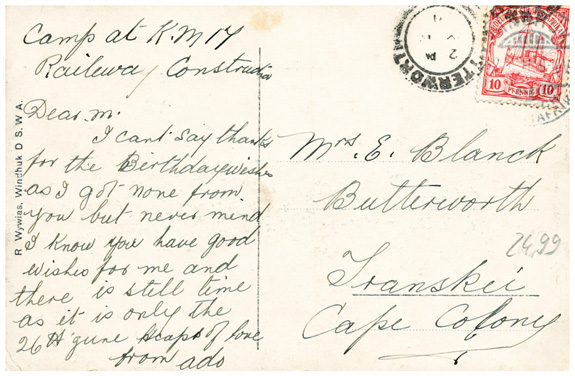 Camp at K.M 17
Railway Construction
Dear M.
I cant say thanks
for the Birthday wishes
as I got none from
you but never mind
I know you have good
wishes for me and
there is still time
as it is only the
26th June Heaps of love
from ado
R. Wywias, Windhuk D. S. W. A.
Mrs. E. Blanck
Butterworth
Transkei
Cape Colony
24,99
10 PFENNIG 10